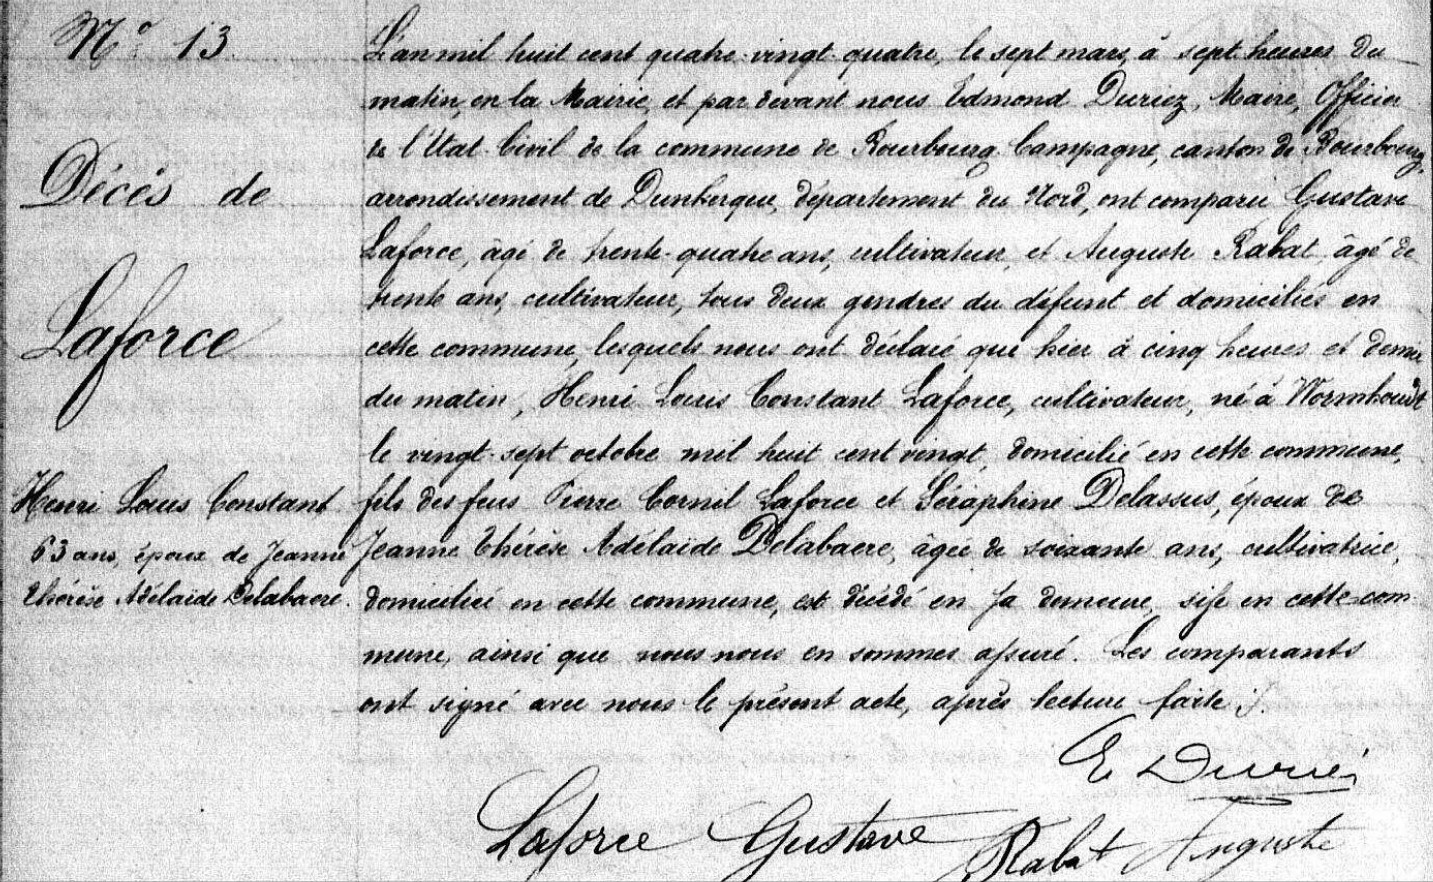 N° 13.
Décès de
Laforce
Henri Louis Constant
63 ans, époux de Jeanne
Thérèse Adélaïde Delabaere.
L'an mil huit cent quatre-vingt-quatre, le sept mars, à sept heures du
matin, en la Mairie, et par devant nous Edmond Duriez, Maire, Officier
de l'Etat-Civil de la commune de Bourbourg-Campagne, canton de Bourbourg,
arrondissement de Dunkerque, département du Nord, ont comparu Gustave
Laforce, âgé de trente-quatre ans, cultivateur, et Auguste Rabat, âgé de
trente ans, cultivateur, tous deux gendres du défunt et domiciliés en
cette commune, lesquels nous ont déclaré que hier à cinq heures et demie
du matin, Henri Louis Constant Laforce, cultivateur, né à Wormhoudt
le vingt-sept octobre mil huit cent vingt, domicilié en cette commune,
fils des feus Pierre Cornil Laforce et Séraphine Delassus, époux de
Jeanne Thérèse Adélaïde Delabaere, âgée de soixante ans, cultivatrice,
domiciliée en cette commune, est décédé en sa demeure, sise en cette com-
mune, ainsi que nous nous en sommes assuré. Les comparants
ont signé avec nous le présent acte, après lecture faite.
E Duriez
Laforce Gustave
Rabat Auguste